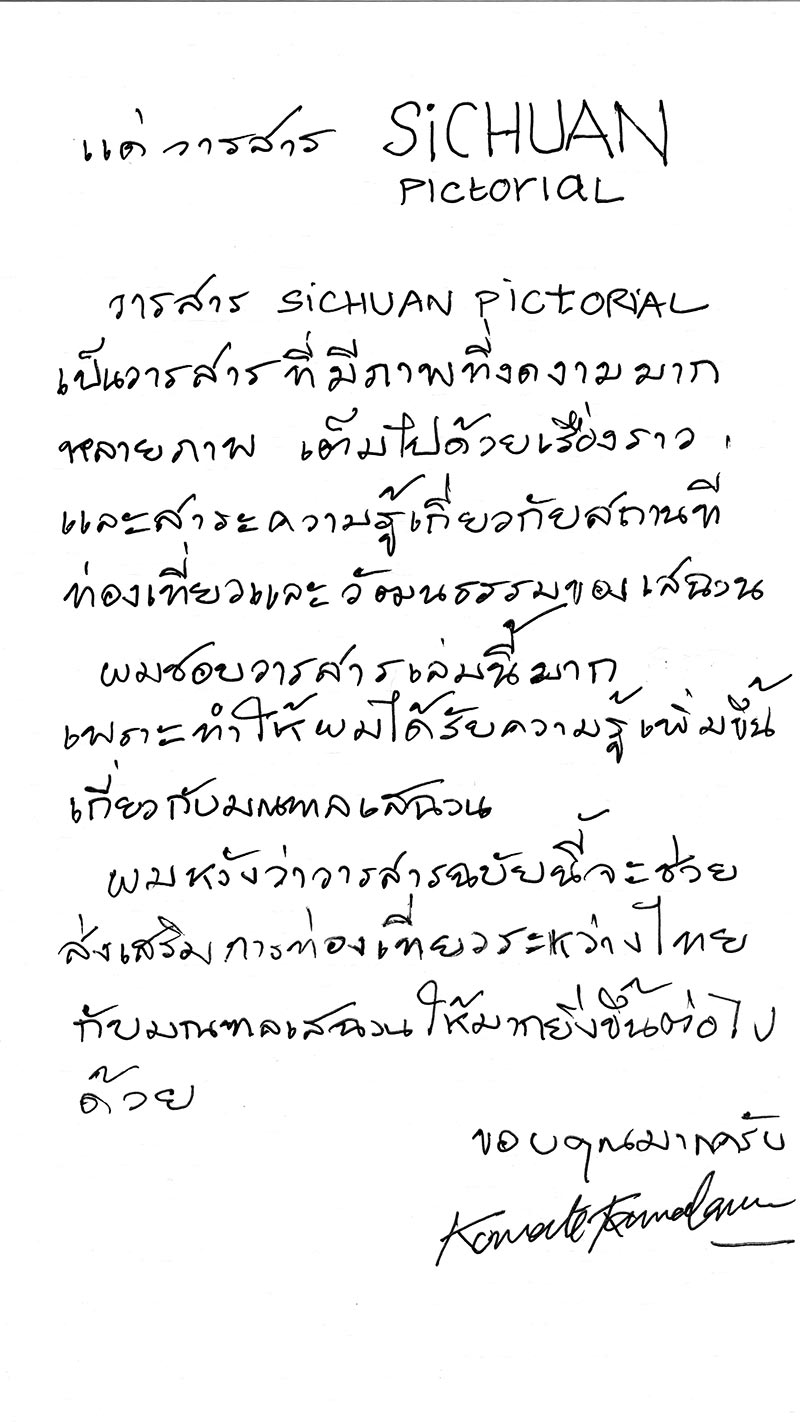 แด่ วารสาร SiCHUAN
PictORIAL
วารสาร SiCHUAN PiCtORiAL
เป็นวารสารที่มีภาพที่งดงามมาก
หลายภาพ เต็มไปด้วยเรื่องราว
และสาระความรู้เกี่ยวกับสถานที่
ท่องเที่ยวและวัฒนธรรมของเสฉวน
ผมชอบวารสารเล่มนี้มาก
เพราะทำให้ผมได้รับความรู้เพิ่มขึ้น
เกี่ยวกับมณฑลเสฉวน
ผมหวังว่าวารสารฉบับนี้จะช่วย
ส่งเสริมการท่องเที่ยวระหว่างไทย
กับมณฑลเสฉวนให้มากยิ่งขึ้นต่อไป
ด้วย
ขอบคุณมากครับ